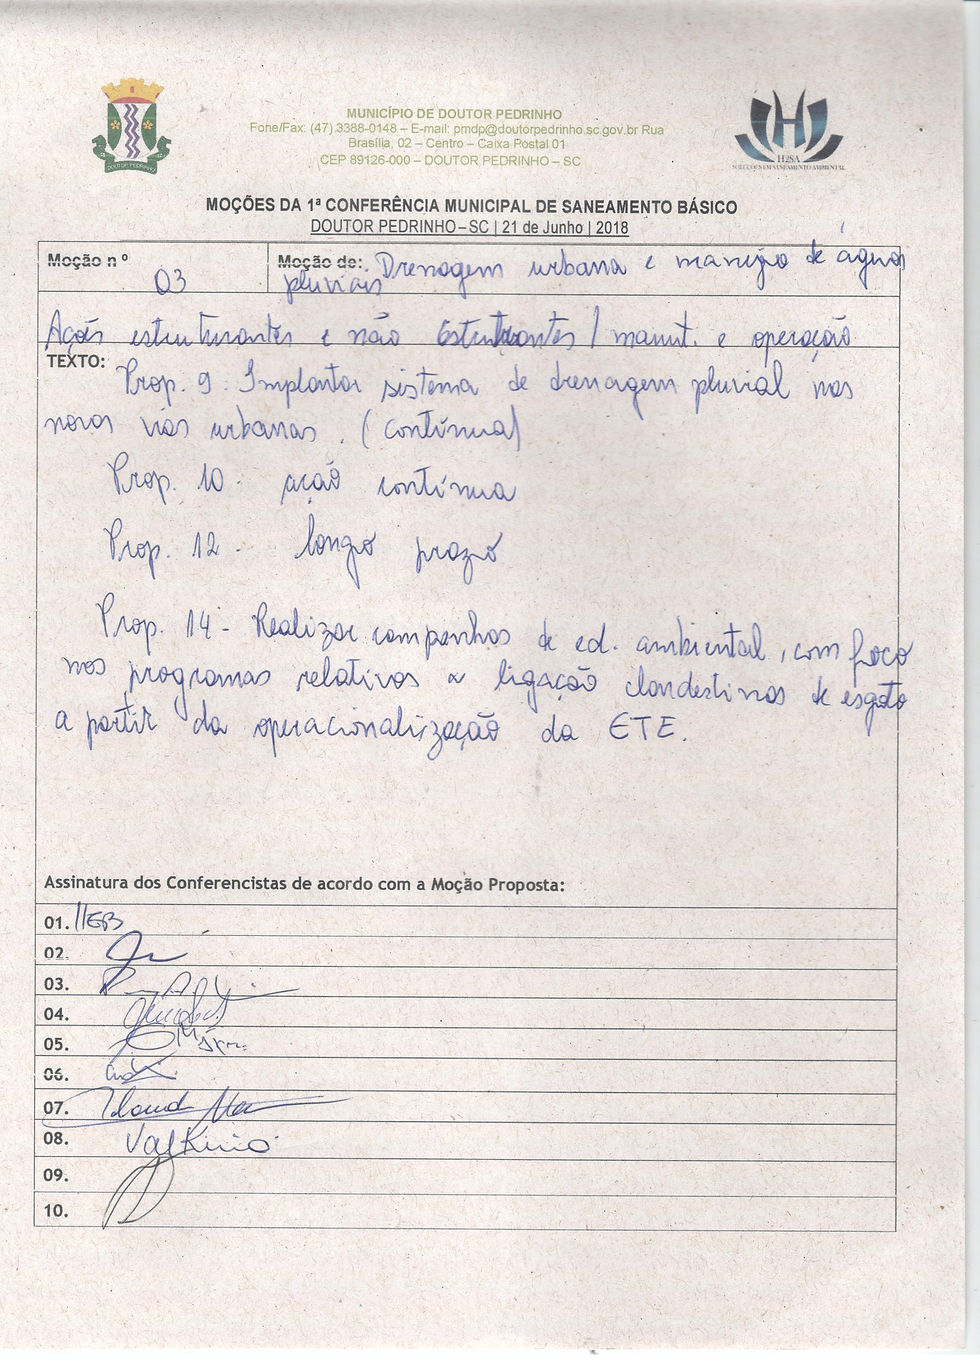 MUNICÍPIO DE DOUTOR PEDRINHO
Fone/Fax: (47) 3388-0148 – E-mail: pmdp@doutorpedrinho.sc.gov.br Rua
Brasília, 02 – Centro – Caixa Postal 01
CEP 89126-000 – DOUTOR PEDRINHO – SC
DOUTOR PEDRINHO
H2SA
SOLUÇÕES EM SANEAMENTO AMBIENTAL
MOÇÕES DA 1ª CONFERÊNCIA MUNICIPAL DE SANEAMENTO BÁSICO
DOUTOR PEDRINHO – SC | 21 de Junho | 2018
Moção n º 03
Moção de: Drenagem urbana e manejo de águas
pluviais
Ações estruturantes e não Estruturantes / manut. e operação
TEXTO: Prop. 9. Implantar sistema de drenagem pluvial nas
novas vias urbanas. (contínua)
Prop. 10 - ação contínua
Prop. 12 - longo prazo
Prop. 14 - Realizar campanhas de ed. ambiental, com foco
nos programas relativos a ligação clandestinas de esgoto
a partir da operacionalização da ETE.
Assinatura dos Conferencistas de acordo com a Moção Proposta:
01.
02.
03.
04.
05.
06.
07.
08. Valkirio
09.
10.